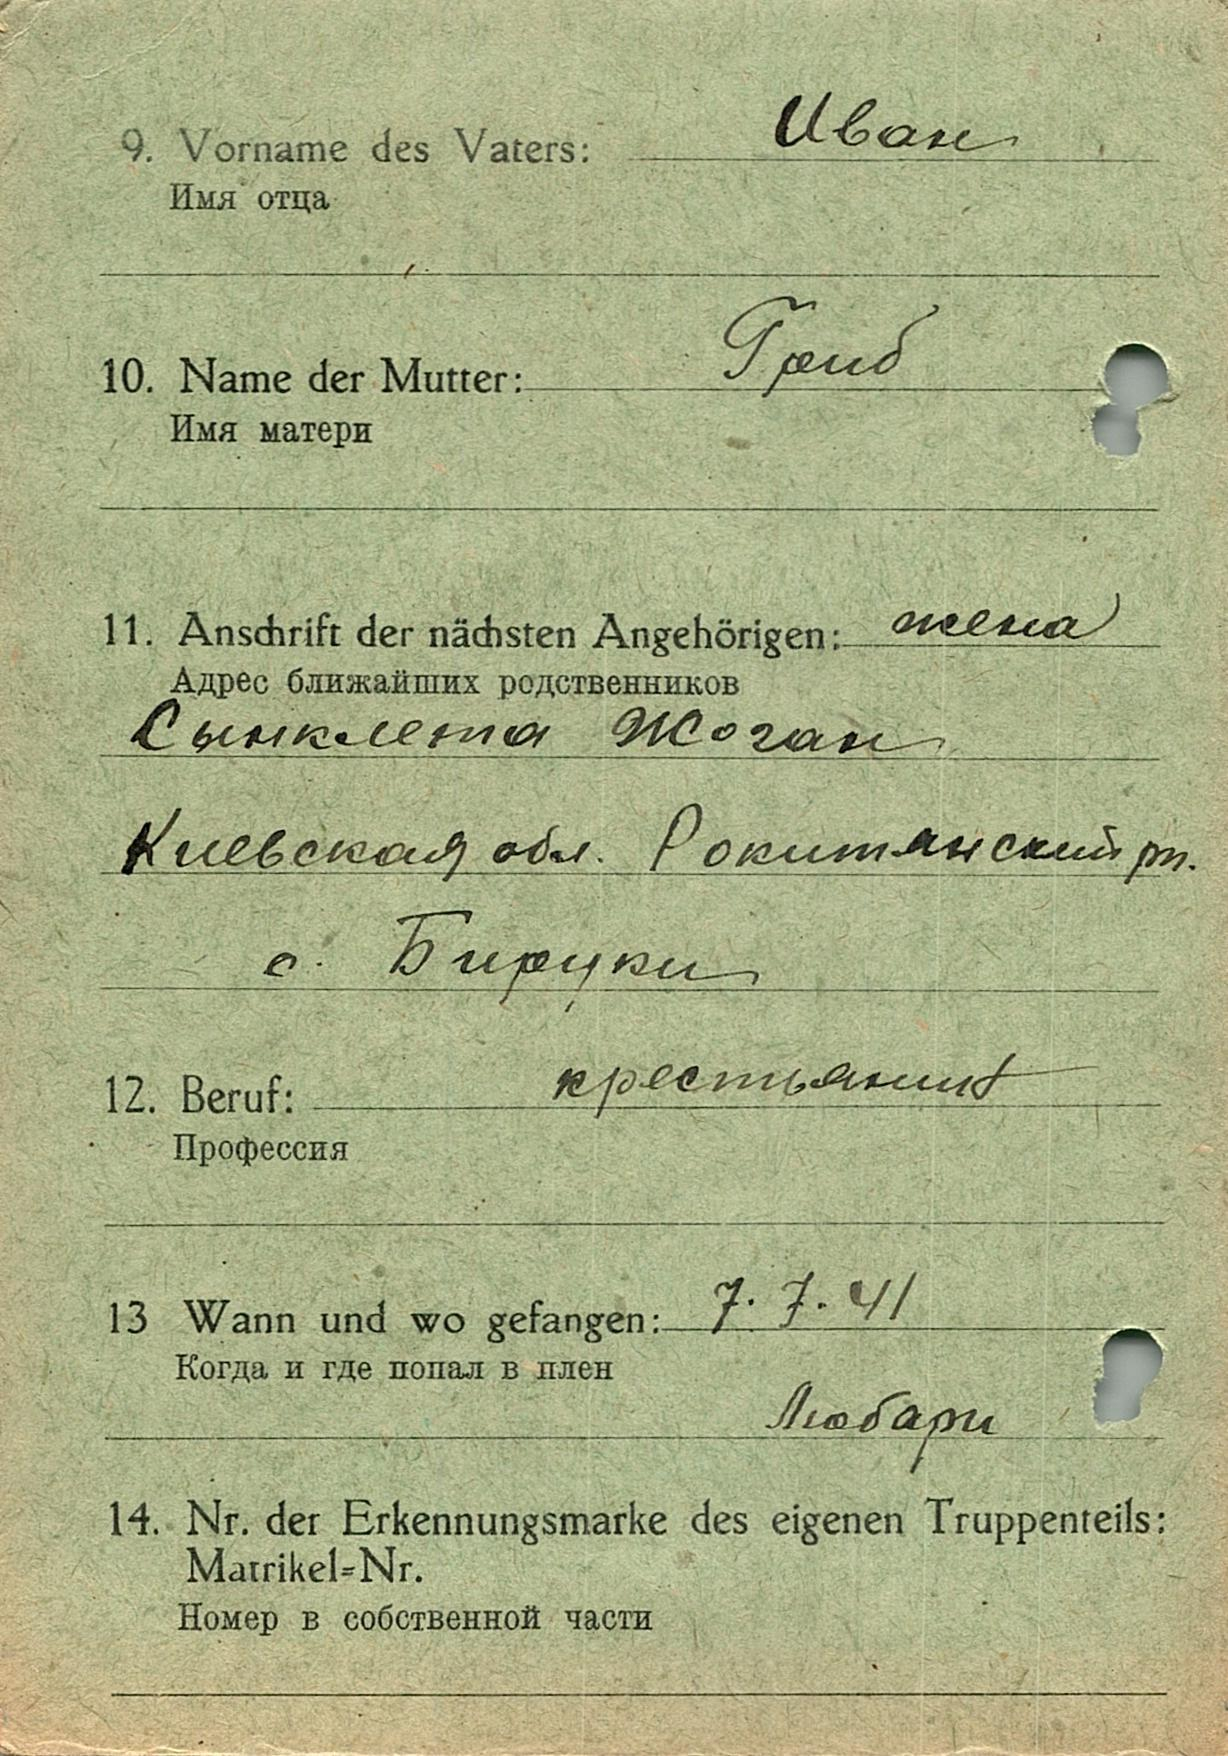 9. Vorname des Vaters: Иван
Имя отца
10. Name der Mutter: Гриб
Имя матери
11. Anschrift der nächsten Angehörigen: жена
Адрес ближайших родственников
Сынклета Жоган
Киевская обл. Рокитянский рн.
с. Бируки
12. Beruf: крестьянин
Профессия
13 Wann und wo gefangen: 7. 7. 41
Когда и где попал в плен
Любари
14. Nr. der Erkennungsmarke des eigenen Truppenteils:
Matrikel=Nr.
Номер в собственной части